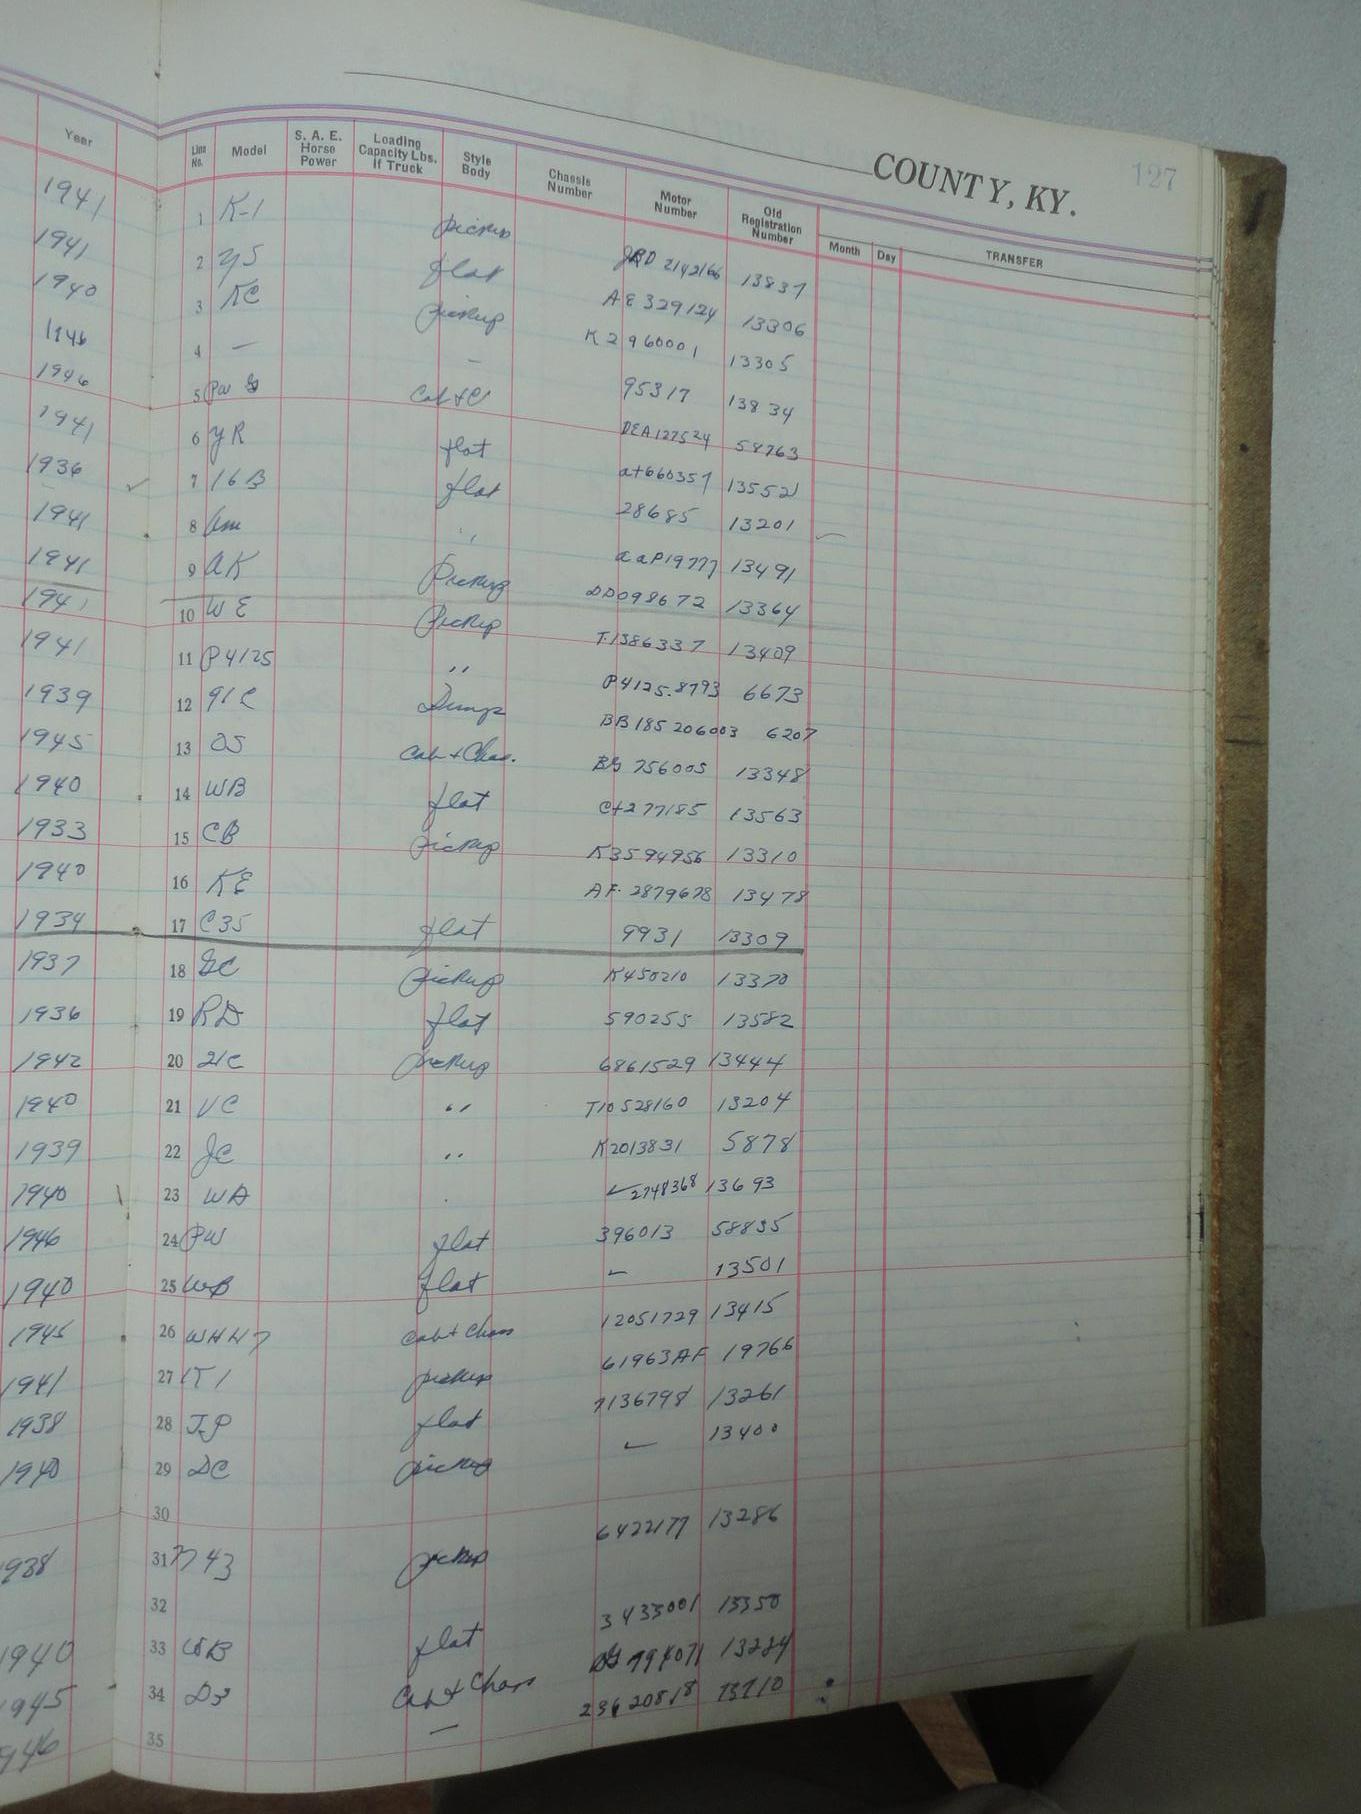 COUNTY, KY. 127
Year Line No. Model S. A. E. Horse Power Loading Capacity Lbs. If Truck Style Body Chassis Number Motor Number Old Registration Number Month Day TRANSFER
1941 1 K-1 pickup 2142166 13837
1941 2 YS flat AE 329124 13306
1940 3 KC pickup K2960001 13305
1946 4 — — 95317 13834
1946 5 Cab + C DEA127524 58763
1941 6 YR flat at660357 13552
1936 7 16 B flat 28685 13201
1941 8 am " aaP19777 13491
1941 9 AK Pickup DD098672 13364
1941 10 WE Pickup T.1386337 13409
1941 11 P4125 " P4125.8793 6673
1939 12 91C Dump BB185206003 6207
1945 13 OS Cab + Chas. BG 756005 13348
1940 14 WB flat Ct277185 13563
1933 15 CB pickup K3594956 13310
1940 16 KE AF. 2879678 13478
1934 17 C35 flat 9931 13309
1937 18 GC pickup K450210 13370
1936 19 RD flat 590255 13582
1942 20 21C pickup 6861529 13444
1940 21 VC " T10528160 13204
1939 22 JC " K2013831 5878
1940 23 WA 2748368 13693
1946 24 PW flat 396013 58835
1940 25 WB flat 13501
1945 26 WHH7 Cab + Chas 12051729 13415
1941 27 K1 pickup 61963AF 19766
1938 28 JP flat 7136798 13261
1940 29 DC pickup 13400
30 6422177 13286
938 31 743 pickup
32 3433001 13350
1940 33 WB flat 13224
945 34 D3 Cab + Chas 23620818 13710
946 35 —